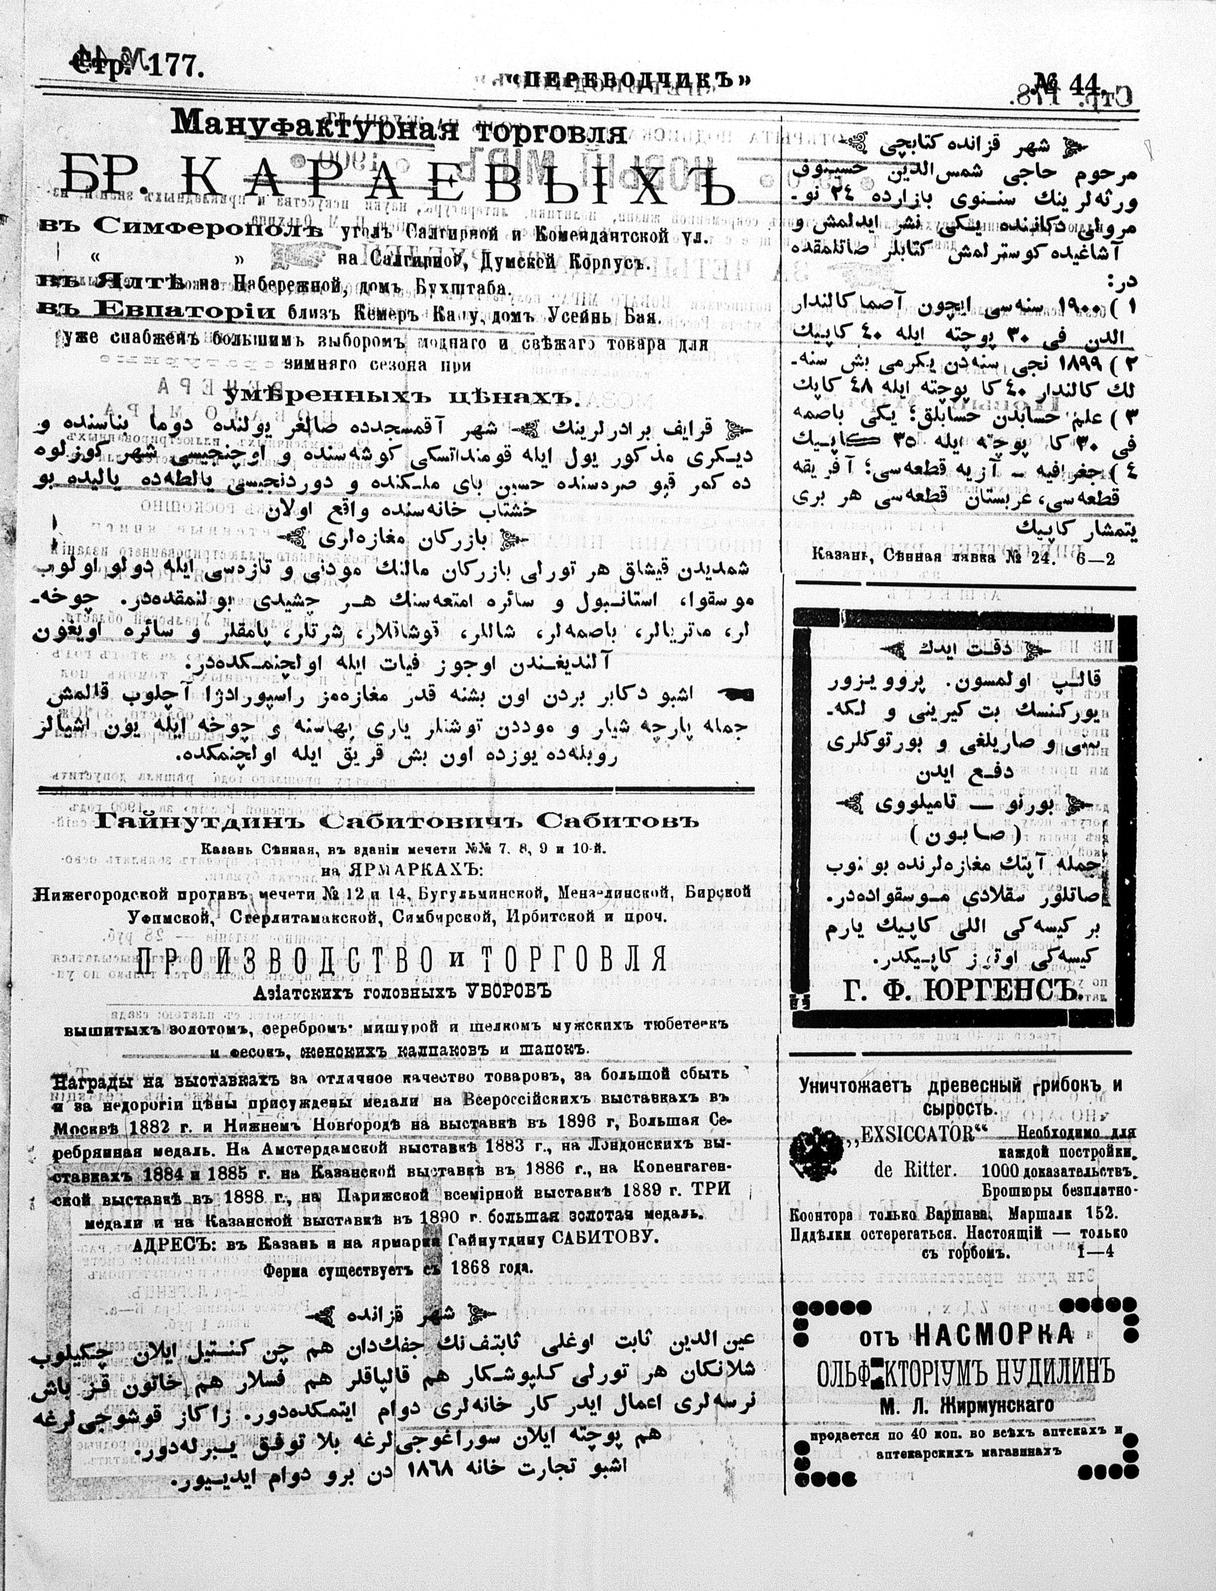 Стр. 177.
"ПЕРЕВОДЧИКЪ"
№ 44.
Мануфактурная торговля
БР. КАРАЕВЫХЪ
въ Симферополѣ уголъ Салгирной и Комендантской ул.
" " на Салгирной, Думской Корпусъ.
въ Ялтѣ на Набережной, домъ Бухштаба.
въ Евпаторіи близъ Кемеръ Капу, домъ Усеинъ Бая.
уже снабженъ большимъ выборомъ моднаго и свѣжаго товара для
зимняго сезона при
умѣренныхъ цѣнахъ.
قرایف برادرلرینك شهر آقمسجدده صالغر یولنده دوما بناسنده و
دیكری مذكور یول ایله قومنداتسكی كوشه‌سنده و اوچنجیسی شهر كوزلوه
ده كمر قپو صره‌سنده حسین بای ملكنده و دوردنجیسی یالطه‌ده یالیده بو
خشتاب خانه‌سنده واقع اولان
بازركان مغازه‌لری
شمدیدن قیشلق هر تورلی بازركان مالنك مودنی و تازه‌سی ایله دولو اولوب
موسقوا، استانبول و سائره امتعه‌سنك هر چشیدی بولنمقده‌در. چوخه‌ـ
لر، ماتریالر، باصمه‌لر، شاللر، قوشاقلار، شرتلر، پامقلر و سائره اویغون
آلندیغندن اوجوز فیات ایله اولچنمكده‌در.
اشبو دكابر بردن اون بشنه قدر مغازه‌مز راسپوراداژا آچلوب قالمش
جمله پارچه شیلر و مودن توشنلر یاری بهاسنه و چوخه ایله یون اشیالز
روبله‌ده یوزده اون بش قریق ایله اولچنمكده.
Гайнутдинъ Сабитовичъ Сабитовъ
Казань Сѣнная, въ зданіи мечети №№ 7, 8, 9 и 10-й.
на ЯРМАРКАХЪ:
Нижегородской противъ мечети № 12 и 14, Бугульминской, Мензелинской, Бирской
Уфимской, Стерлитамакской, Симбирской, Ирбитской и проч.
ПРОИЗВОДСТВО и ТОРГОВЛЯ
Азіатскихъ головныхъ УБОРОВЪ
вышитыхъ золотомъ, серебромъ мишурой и шелкомъ мужскихъ тюбетекъ
и фесокъ, женскихъ калпаковъ и шапокъ.
Награды на выставкахъ за отличное качество товаровъ, за большой сбытъ
и за недорогіи цѣны присуждены медали на Всероссійскихъ выставкахъ въ
Москвѣ 1882 г. и Нижнемъ Новгородѣ на выставкѣ въ 1896 г, Большая Се-
ребрянная медаль. На Амстердамской выставкѣ 1883 г., на Лондонскихъ вы-
ставкахъ 1884 и 1885 г. на Казанской выставкѣ въ 1886 г., на Копенгаген-
ской выставкѣ въ 1888 г., на Парижской всемірной выставкѣ 1889 г. ТРИ
медали и на Казанской выставкѣ въ 1890 г. большая золотая медаль.
АДРЕСЪ: въ Казань и на ярмарки Гайнутдину САБИТОВУ.
Фирма существуетъ съ 1868 года.
شهر قزانده
عین الدین ثابت اوغلی ثابتف‌نك جفك‌دان هم چن كنستیل ایلان چكیلوب
شلانكان هر تورلی كلپوشكار هم قالپاقلر هم فسلار هم خاتون قز باش
نرسه‌لری اعمال ایدر كار خانه‌لری دوام ایتمكده‌دور. زاكاز قوشوچی‌لرغه
هم پوچته ایلان سوراغوچی‌لرغه بلا توفق یبرله‌دور.
اشبو تجارت خانه ١٨٦٨ دن برو دوام ایدیـیور.
شهر قزانده كتابچی
مرحوم حاجی شمس‌الدین حسینوف
ورثه‌لرینك سننوی بازارده ٢٤ نو-
مرولی دكاننده یكی نشر ایدلمش و
آشاغیده كوسترلمش كتابلر صاتلمقده
در:
١ ) ١٩٠٠ سنه‌سی ایچون آصما كالندار
الدن فی ٣٠ پوچته ایله ٤٠ كاپیك
٢ ) ١٨٩٩ نجی سنه‌دن یكرمی بش سنه-
لك كالندار ٤٠ كا پوچته ایله ٤٨ كاپك
٣ ) علم حسابدن حسابلق؛ یكی باصمه
فی ٣٠ كا پوچته ایله ٣٥ كاپیك
٤ ) جغرافیه — آزیه قطعه‌سی؛ آفریقه
قطعه‌سی، عربستان قطعه‌سی هر بری
یتمشار كاپیك
Казань, Сѣнная лавка № 24. 6—2
دقت ایدك
قالپ اولمسون. پروویزور
یوركنسك بت كیرینی و لكه-
سی و صاریلغی و بورتوكلری
دفع ایدن
بورنو — تامیلووی
(صابون)
جمله آپتك مغازه‌لرنده بولنوب
صاتلور سقلادی موسقواده‌در.
بر كیسه‌كی اللی كاپیك یارم
كیسه‌كی اوتوز كاپیكدر.
Г. Ф. ЮРГЕНСЪ.
Уничтожаетъ древесный грибокъ и
сырость.
„EXSICCATOR“ Необходимо для
каждой постройки.
de Ritter. 1000 доказательствъ.
Брошюры безплатно-
Коонтора только Варшава, Маршалк 152.
Пддѣлки остерегаться. Настоящій — только
съ горбомъ. 1—4
отъ НАСМОРКА
ОЛЬФАКТОРІУМЪ НУДИЛИНЪ
М. Л. Жирмунскаго
продается по 40 коп. во всѣхъ аптекахъ и
аптекарскихъ магазинахъ